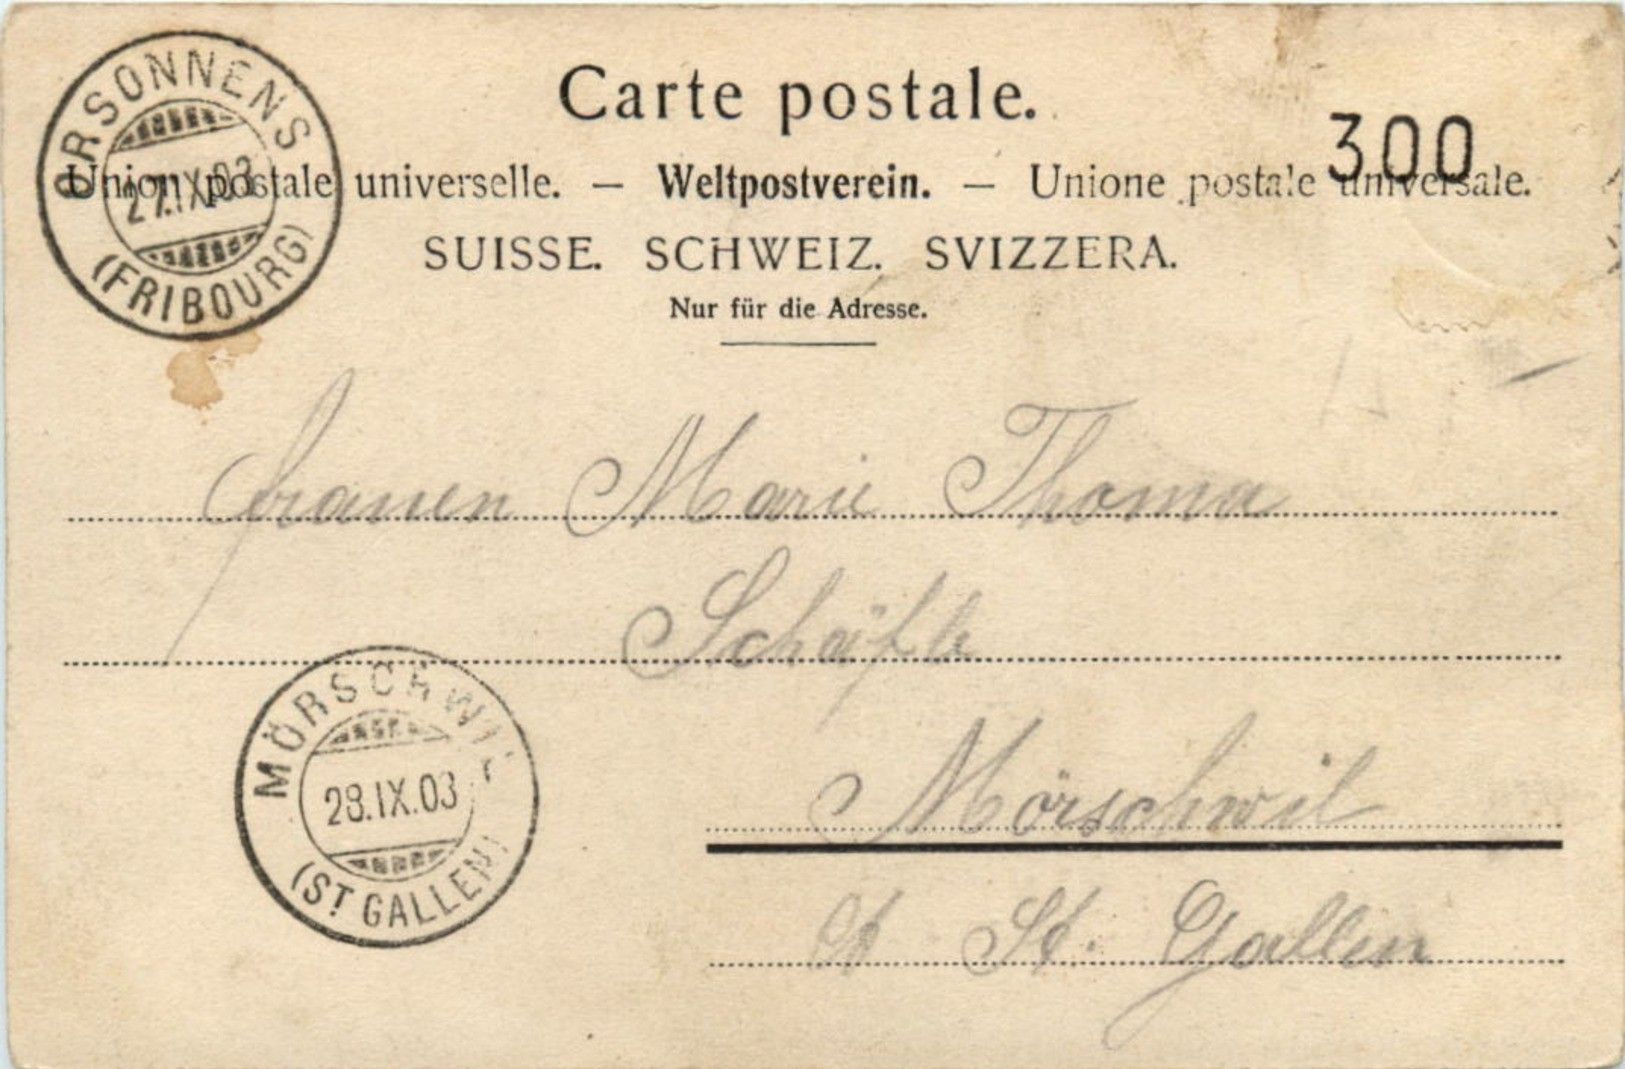 Carte postale.
300
Union postale universelle. — Weltpostverein. — Unione postale universale.
SUISSE. SCHWEIZ. SVIZZERA.
Nur für die Adresse.
ORSONNENS
27.IX.03
(FRIBOURG)
Marie Thoma
Schäfle
Mörschwil
St. Gallen
MÖRSCHWIL
28.IX.03
(ST. GALLEN)